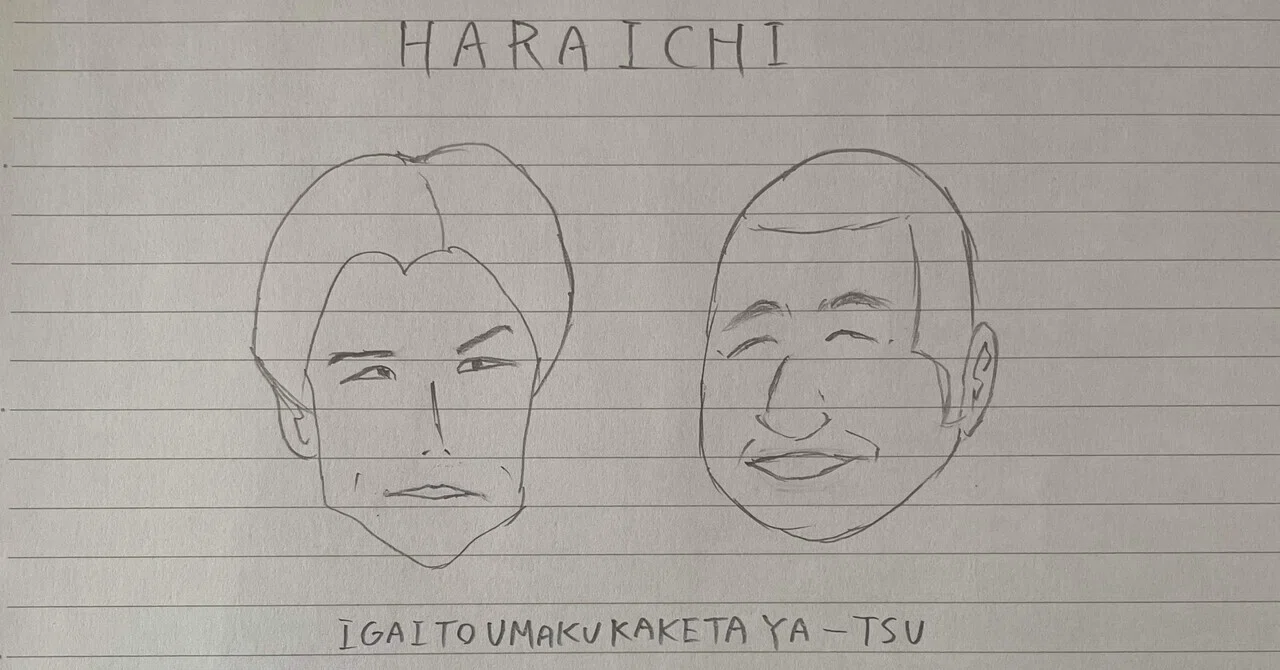 HARAICHI
IGAITOUMAKUKAKETA YA-TSU